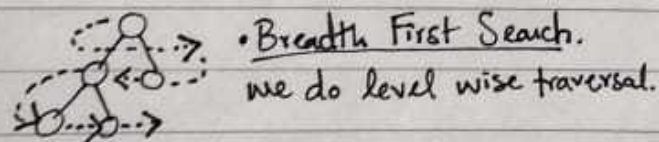 • Breadth First Search.
we do level wise traversal.